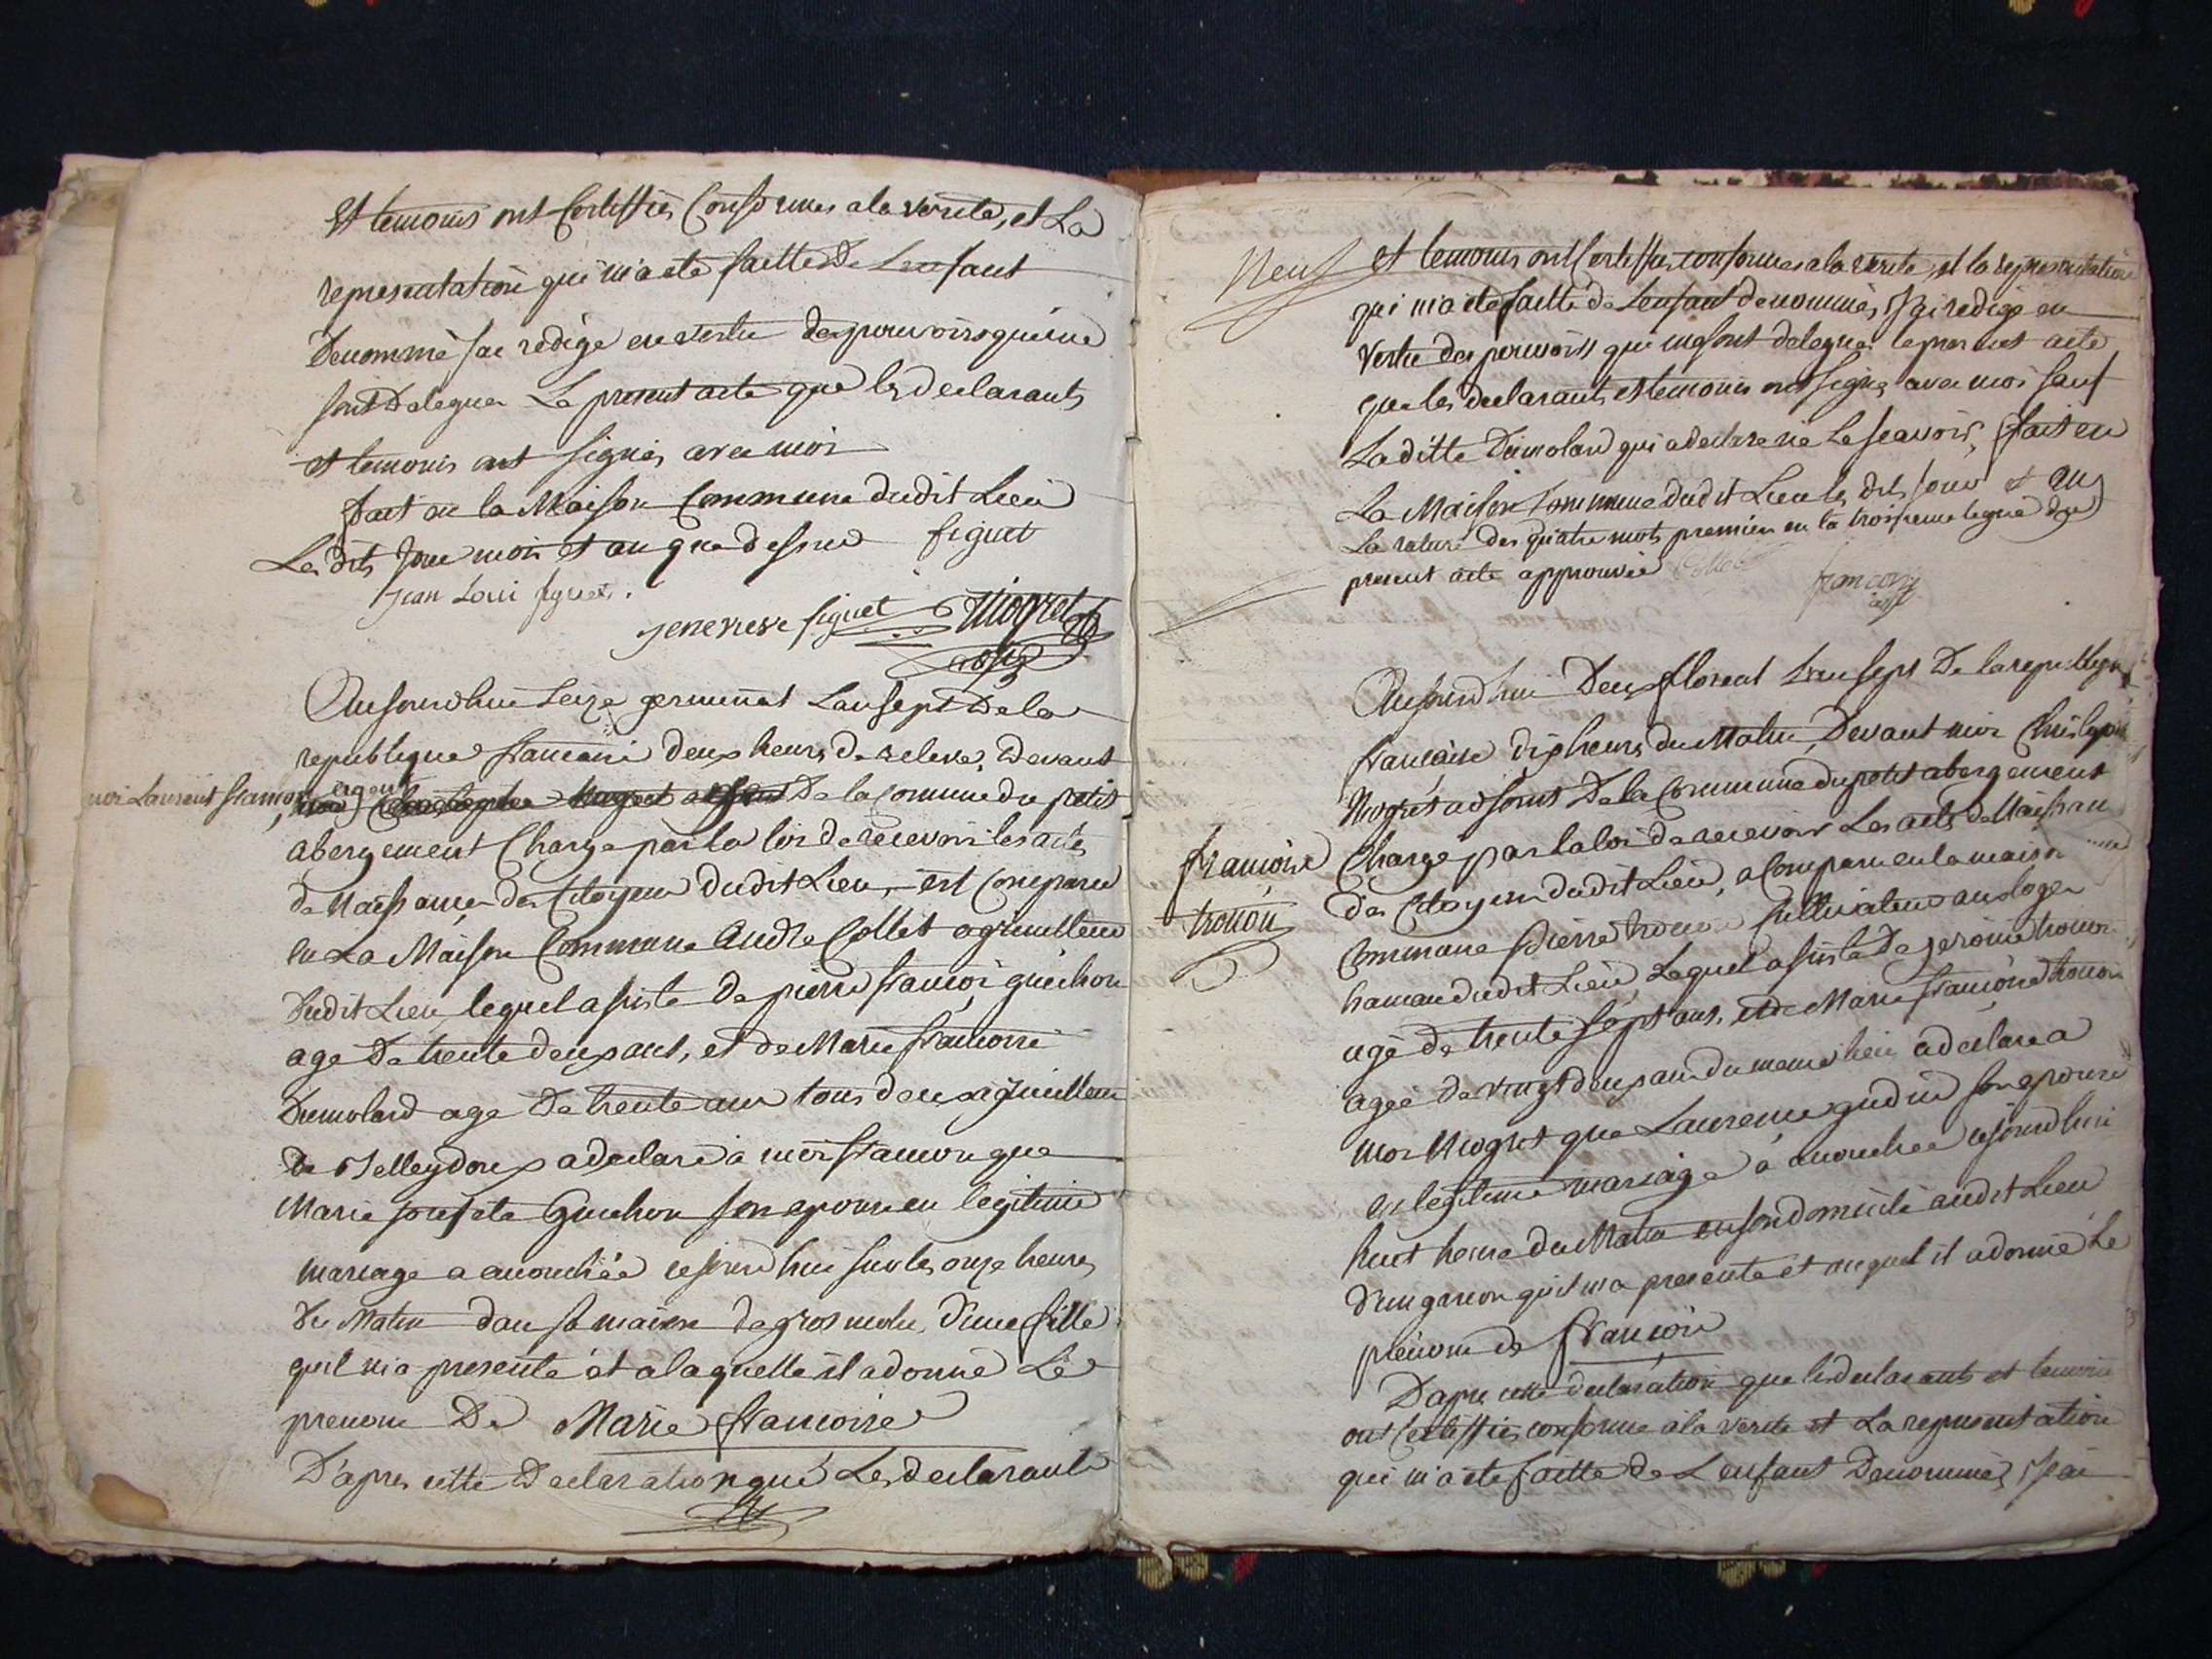 Et temoins ont Certiffiés Conformes a la verité, et La
representation qui m'a eté faitte De L'enfant
Denommé j'ai redigé en vertu des pouvoirs qui me
sont Delegués Le present acte que les declarants
et temoins ont signés avec moi
fait en la Maison Commune dudit Lieu
Les dits jour mois et an que dessus figuet
jean Loui figuet.
jenevieve figuet Niogret
adjt
Aujourdhui Seize germinal L'an sept De la
republique francaise deux heures de relevé, Devant
moi Laurent francon agent De la Commune du petit
abergement Chargé par la loi de recevoir les actes
de Naissances des Citoyens dudit Lieu, est Comparu
en La Maison Commune André Collet
dudit Lieu, lequel assisté De pierre francoi guichon
age De trente deux ans, et de Marie francoise
Dumolard age De trente ans tous deux
de Belleydoux a declaré a moi francon que
Marie josepte Guichon son epouse en legitime
mariage a accouchée cejourd'hui sur les onze heures
du Matin dans sa maison de gros molu, d'une fille
quil m'a presenté et a laquelle il a donné Le
prenom De Marie francoise
D'apres cette Declaration que Les declarants
Neuf et temoins ont Certiffiés conformes a la verité, et la representation
qui m'a eté faitte de L'enfant denommé, J'ai redigé en
vertu des pouvoirs qui me sont delegués le present acte
que les declarants et temoins ont signés avec moi sauf
La ditte Dumolard qui a declaré ne le scavoir, fait en
La Maison Commune dudit Lieu les dits jour et an
La rature des quatre mots premiers en la troisieme ligne du
present acte approuvée Collet francon
agt
Aujourdhui Deux floreal L'an sept De la republique
francaise dix heures du Matin, Devant moi
Niogret adjoint De la Commune du petit abergement
francoise Chargé par la loi de recevoir Les actes de Naissances
trocon des Citoyens dudit Lieu, a Comparu en la maison
Commune pierre trocon Cultivateur au loger
hamau dudit Lieu, Lequel assisté De jerome trocon
agé de trente sept ans, et de Marie francoise trocon
agée de vingt deux ans du meme lieu, a declaré a
moi Niogret que Laurence gudin son epouse
en legitime mariage a accouchée cejourdhui
huit heures du Matin en son domicile audit Lieu
d'un garcon quil m'a presenté et auquel il a donné Le
prénom de francois
D'apres cette declaration que les declarants et temoins
ont Certiffiés conforme a la verité et La representation
qui m'a eté faitte de L'enfant Denommé, J'ai